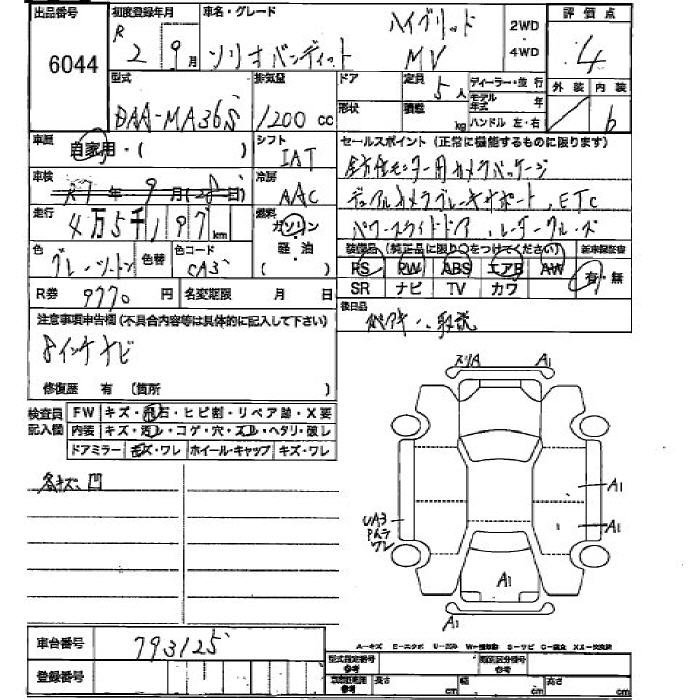 出品番号
6044
初度登録年月
R 2 9月
車名・グレード
ソリオバンディット
ハイブリッド
MV
2WD
4WD
評価点
4
外装 内装
b
型式
DAA-MA36S
排気量
1200 cc
ドア
定員
5人
形状
積載
kg
ディーラー・並行
モデル年式 年
ハンドル 左・右
車歴
自家用・( )
シフト
IAT
セールスポイント (正常に機能するものに限ります)
全方位モニター用カメラパッケージ
デュアルカメラブレーキサポート、ETC
パワースライドドア、レーダークルーズ
車検
R7年9月(28日)
冷房
AAC
走行
4万5千197km
燃料
ガソリン
軽油
( )
色
グレーツートン
色替
色コード
CA5
装備品 (純正品に限り○をつけてください)
新車保証書
PS PW ABS エアB AW
SR ナビ TV カワ
有・無
R券 9770円
名変期限 月 日
後日品
スペアキー、取説
注意事項申告欄 (不具合内容等は具体的に記入して下さい)
8インチナビ
修復歴 有 (箇所 )
検査員記入欄
FW キズ・飛石・ヒビ割・リペア跡・X要
内装 キズ・汚レ・コゲ・穴・スレ・ヘタリ・破レ
ドアミラー キズ・ワレ ホイール・キャップ キズ・ワレ
各キズ、凹
スリA
A1
A1
A1
UA3
ワレ
A1
A1
車台番号
793125
登録番号
A-キズ E-エクボ U-凹み W-補修跡 S-サビ C-腐食 XX-交換済
型式指定番号
参考
類別区分番号
参考
長さ cm
幅 cm
高さ cm